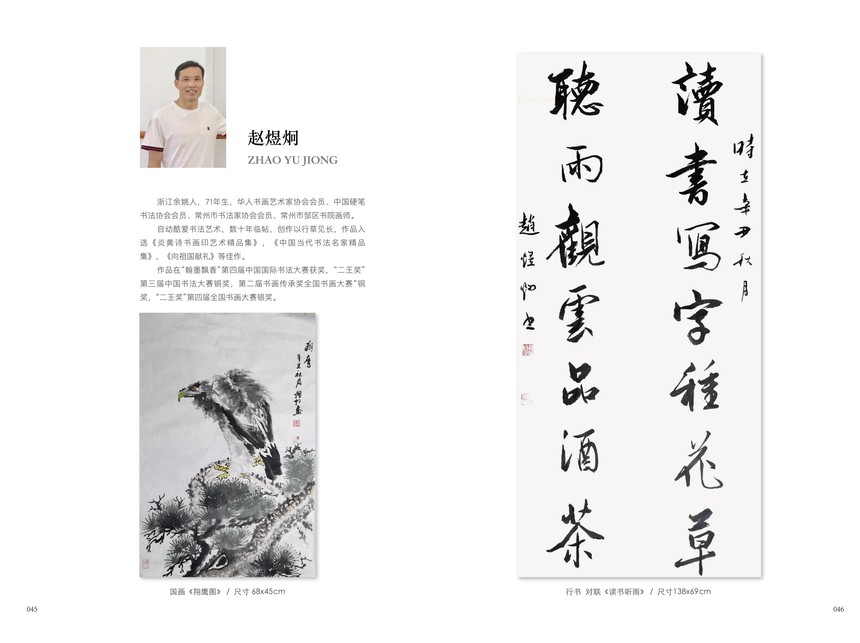 赵煜炯
ZHAO YU JIONG
浙江余姚人，71年生，华人书画艺术家协会会员、中国硬笔
书法协会会员、常州市书法家协会会员、常州市邹区书院画师。
自幼酷爱书法艺术，数十年临帖，创作以行草见长，作品入
选《炎黄诗书画印艺术精品集》，《中国当代书法名家精品
集》，《向祖国献礼》等佳作。
作品在“翰墨飘香”第四届中国国际书法大赛获奖，“二王奖”
第三届中国书法大赛铜奖，第二届书画传承奖全国书画大赛“铜
奖，“二王奖”第四届全国书画大赛银奖。
翔鹰
辛丑秋月 煜炯画
国画《翔鹰图》 / 尺寸 68x45cm
045
時在辛丑秋月
讀書寫字種花草
聽雨觀雲品酒茶
趙煜炯书
行书 对联《读书听雨》 / 尺寸138x69cm
046